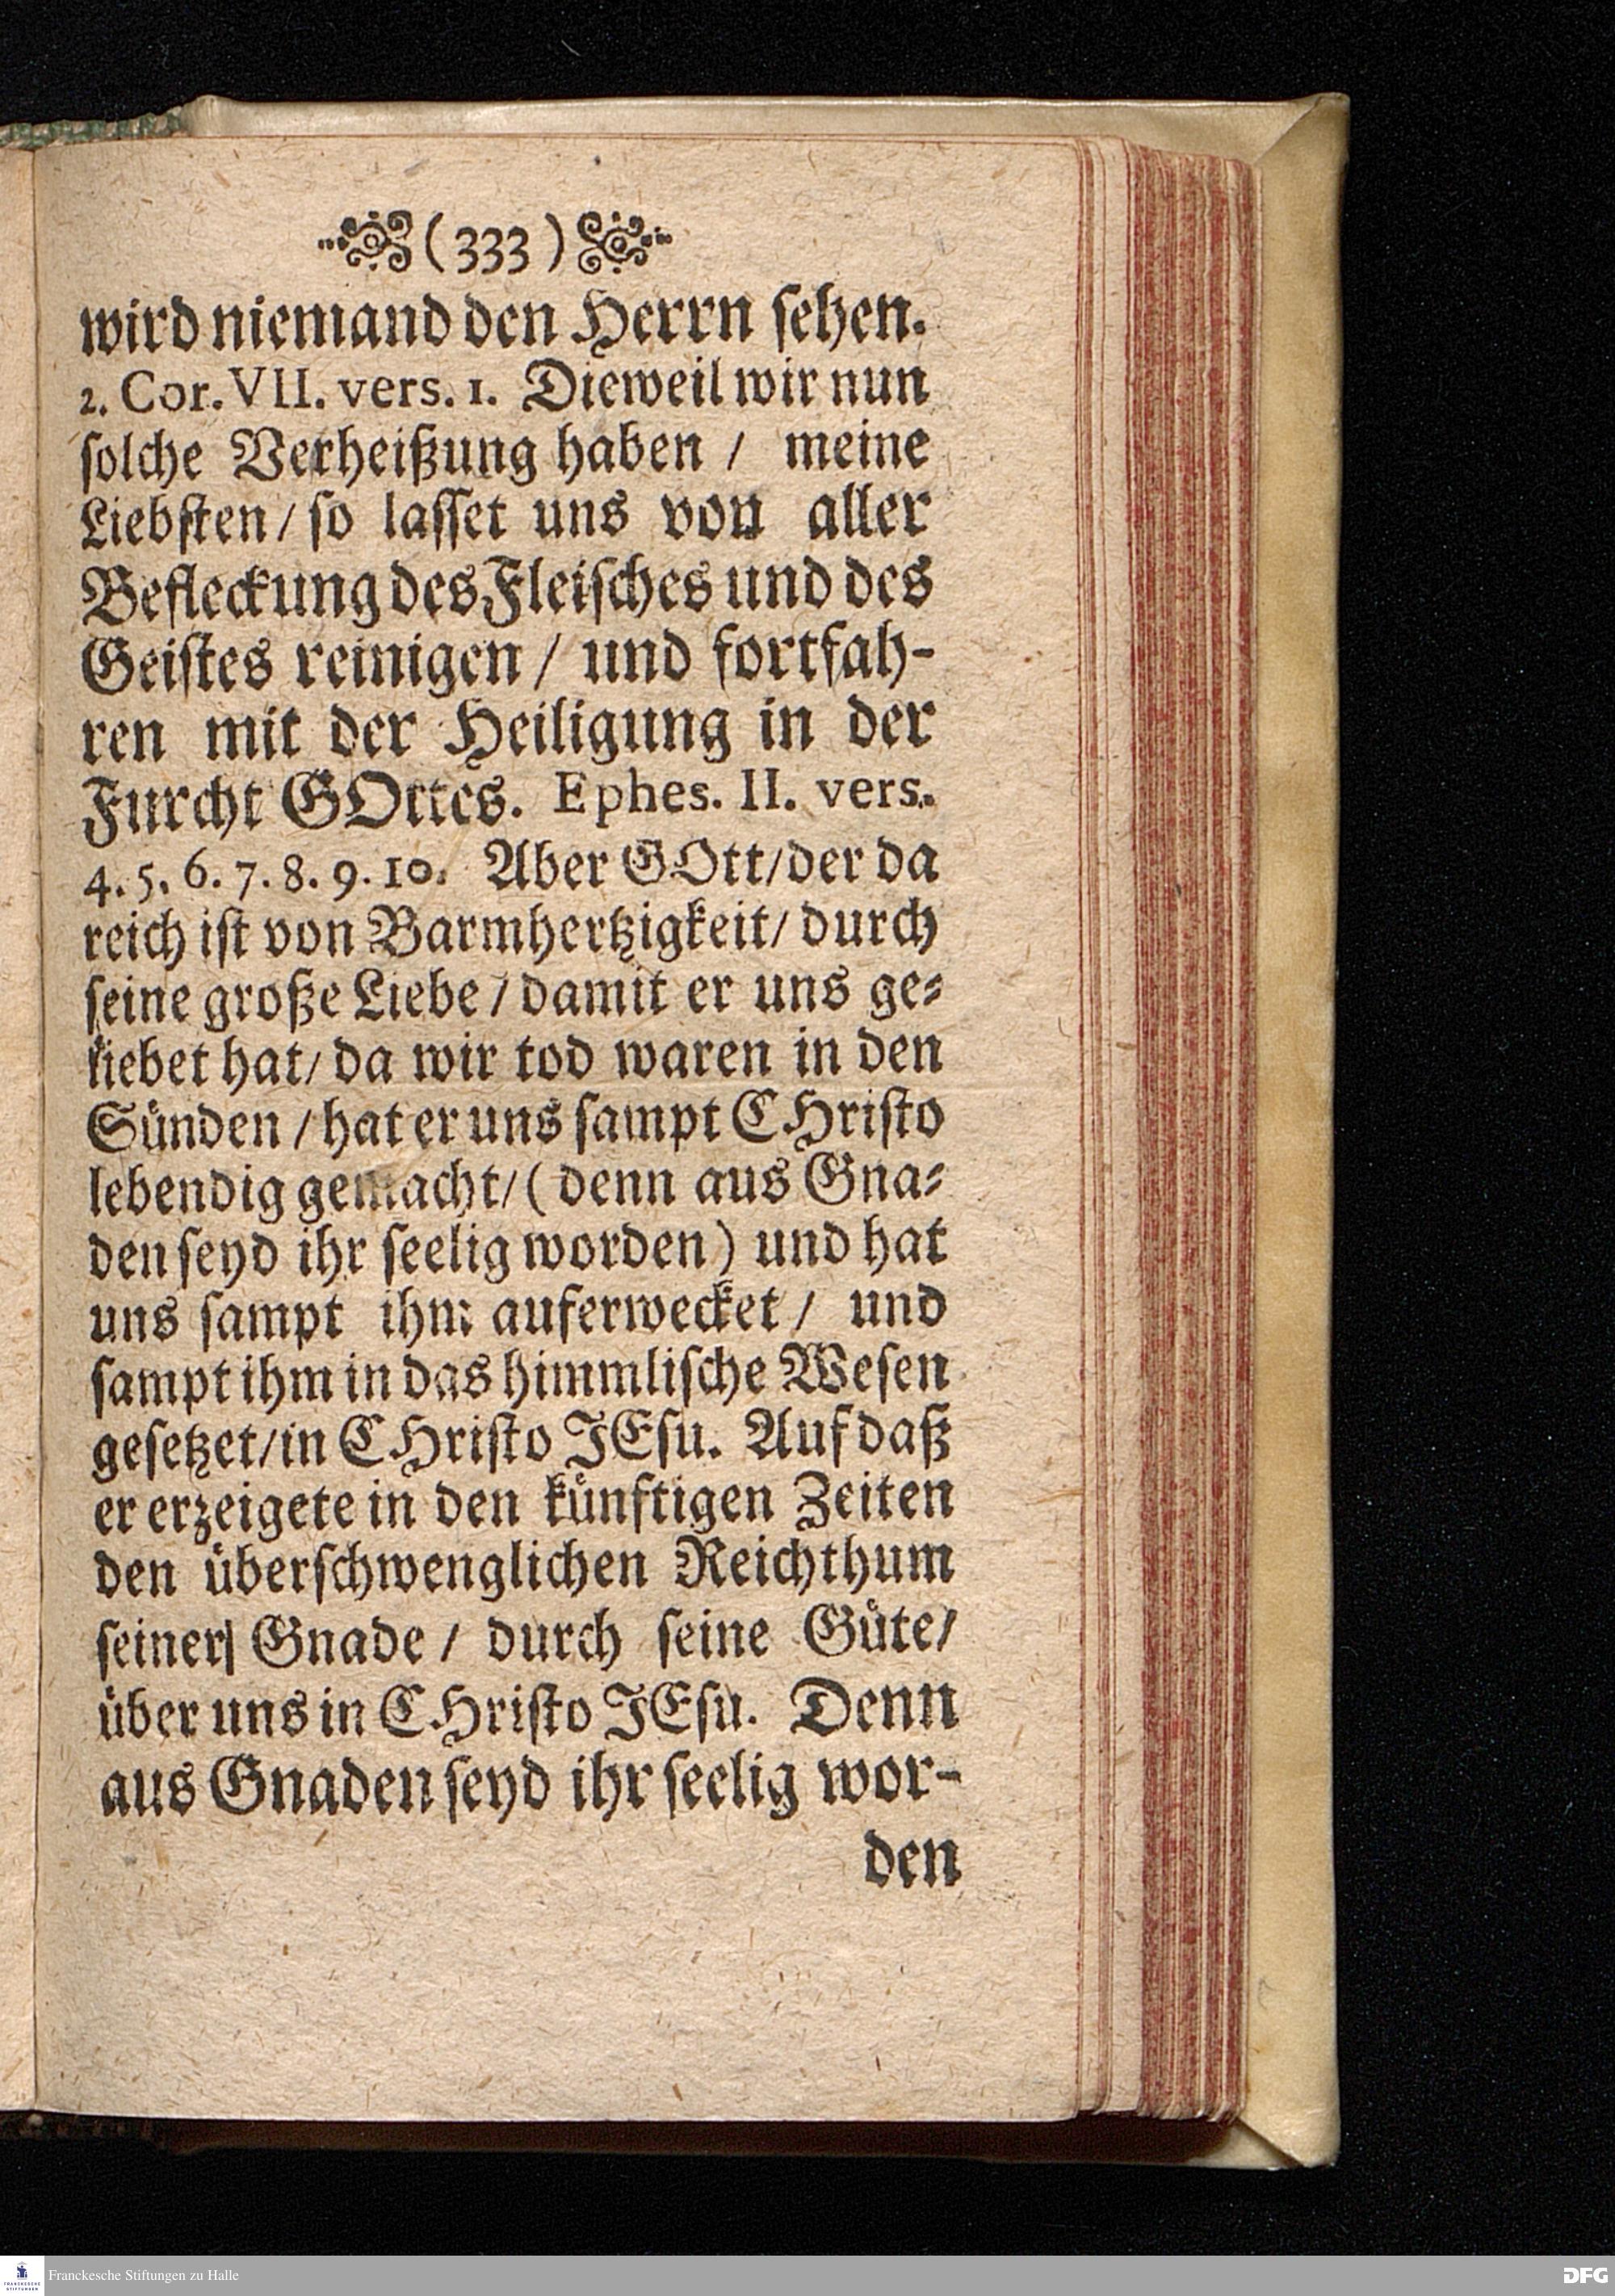 (333)
wird niemand den Herrn sehen.
2. Cor. VII. vers. 1. Dieweil wir nun
solche Verheißung haben / meine
Liebsten / so lasset uns von aller
Befleckung des Fleisches und des
Geistes reinigen / und fortfah-
ren mit der Heiligung in der
Furcht GOttes. Ephes. II. vers.
4. 5. 6. 7. 8. 9. 10. Aber GOtt / der da
reich ist von Barmhertzigkeit / durch
seine große Liebe / damit er uns ge-
liebet hat / da wir tod waren in den
Sünden / hat er uns sampt CHristo
lebendig gemacht / (denn aus Gna-
den seyd ihr seelig worden) und hat
uns sampt ihm auferwecket / und
sampt ihm in das himmlische Wesen
gesetzet / in CHristo JEsu. Auf daß
er erzeigete in den künftigen Zeiten
den überschwenglichen Reichthum
seiner Gnade / durch seine Güte /
über uns in CHristo JEsu. Denn
aus Gnaden seyd ihr seelig wor-
den
FRANCKESCHE STIFTUNGEN
Franckesche Stiftungen zu Halle
DFG